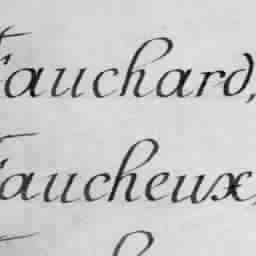 Fauchard,
Faucheux,